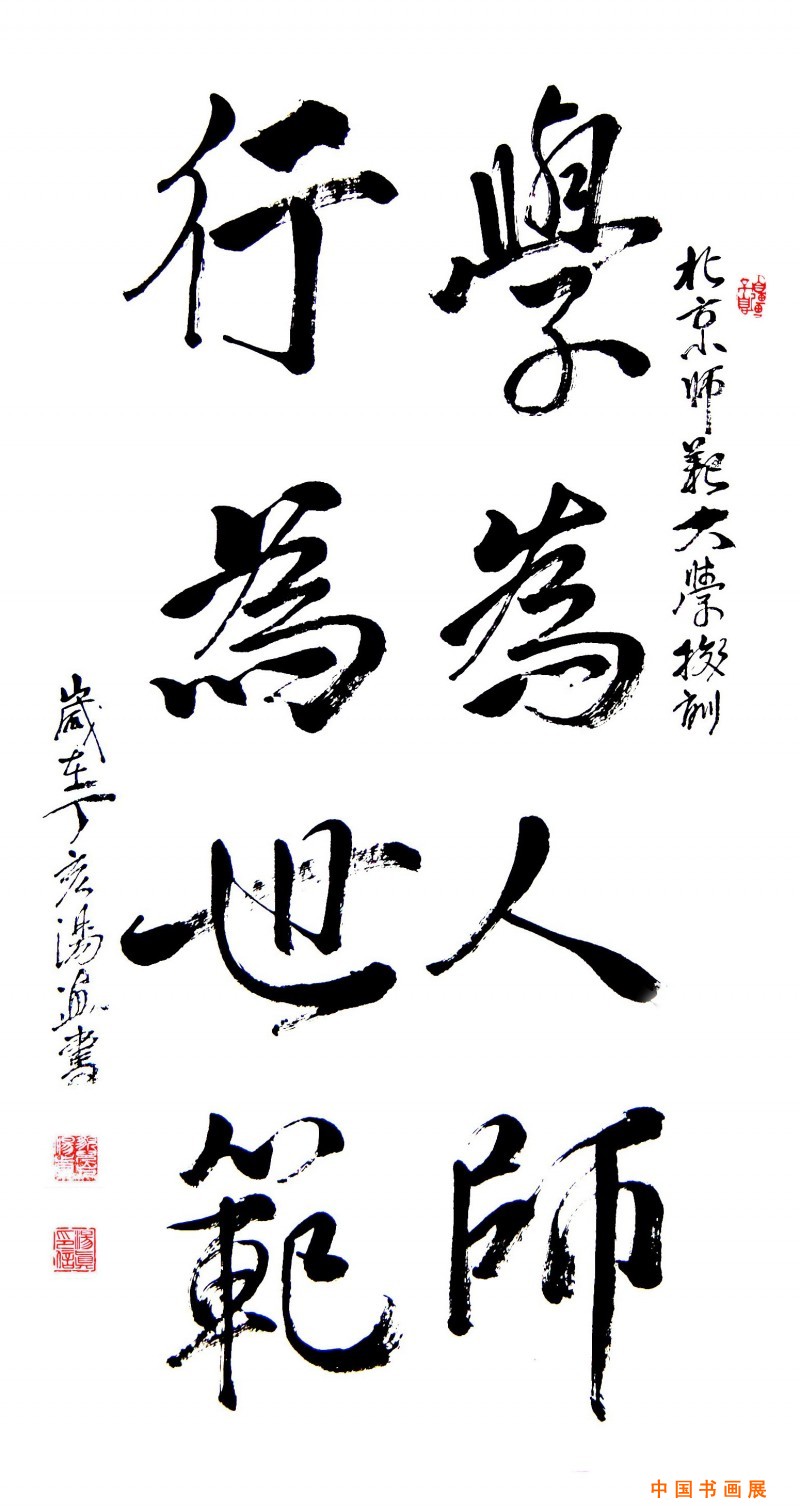 北京师範大學校訓
學為人師
行為世範
歲在丁亥湯真書
中国书画展